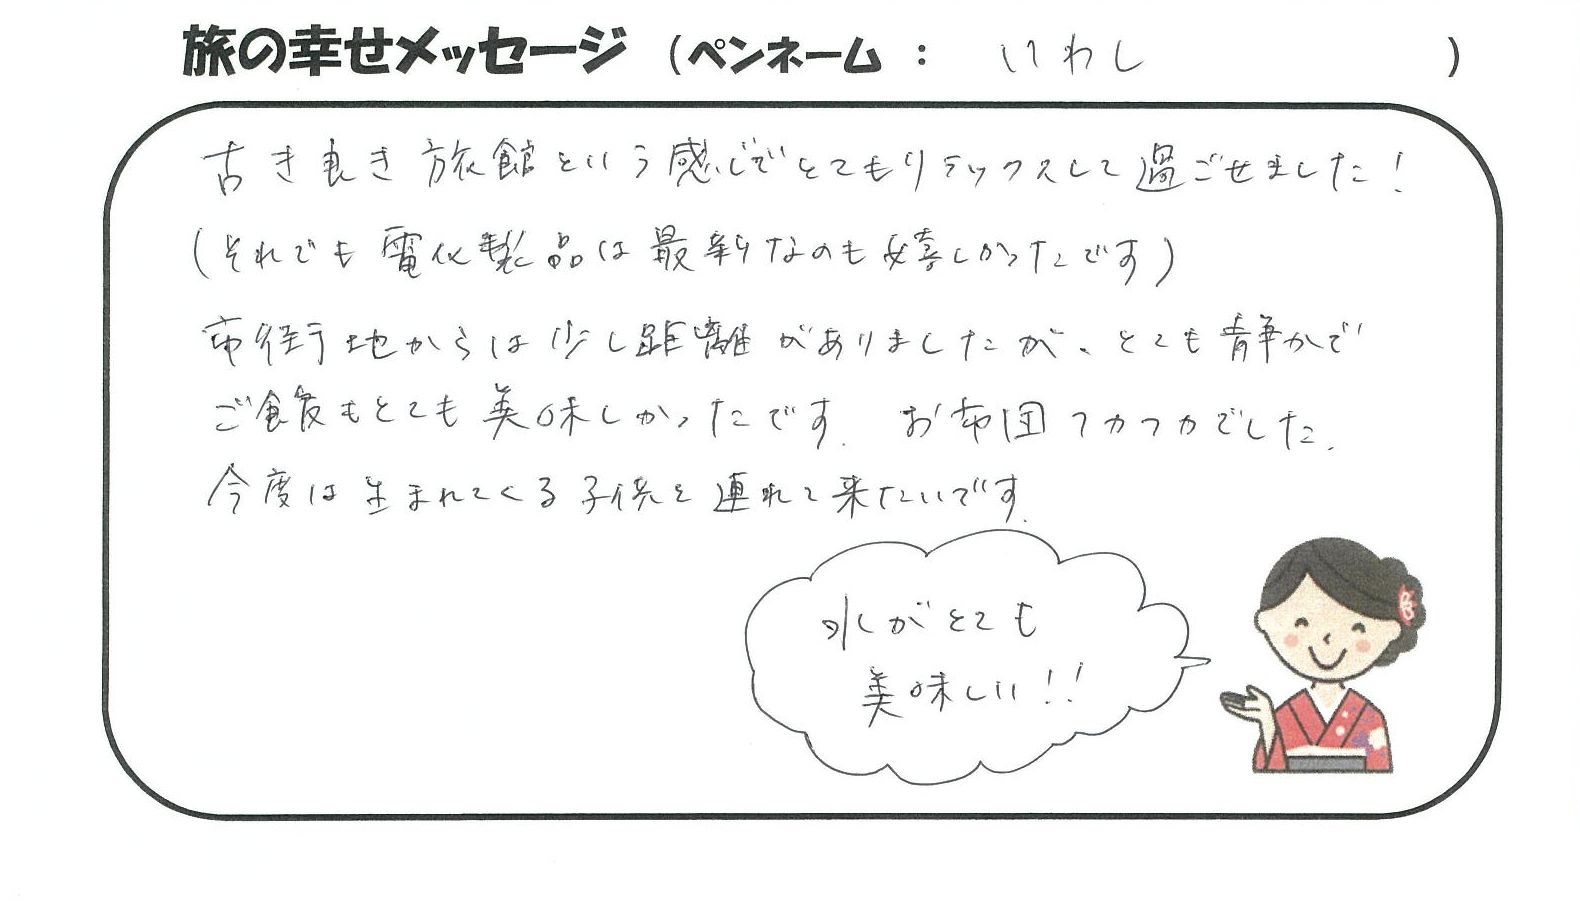 旅の幸せメッセージ （ペンネーム ： いわし ）
古き良き旅館という感じでとてもリラックスして過ごせました！
(それでも電化製品は最新なのも嬉しかったです)
市街地からは少し距離がありましたが、とても静かで
ご飯もとても美味しかったです。お布団フカフカでした。
今度は生まれてくる子供を連れて来たいです。
水がとても
美味しい！！